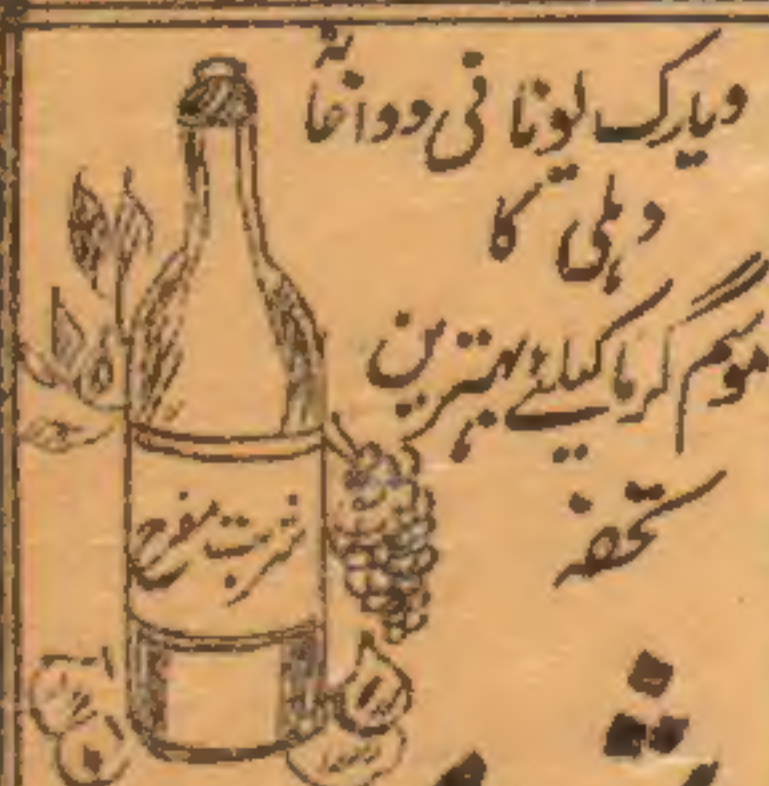 ویدک یونانی دواخانہ
دہلی کا
موسم گرما کیلئے بہترین
تحفہ
شربت مفرح